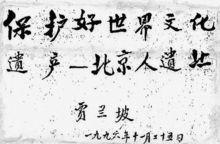 保护好世界文化
遗产—北京人遗址
贾兰坡
一九九六年十一月二十五日